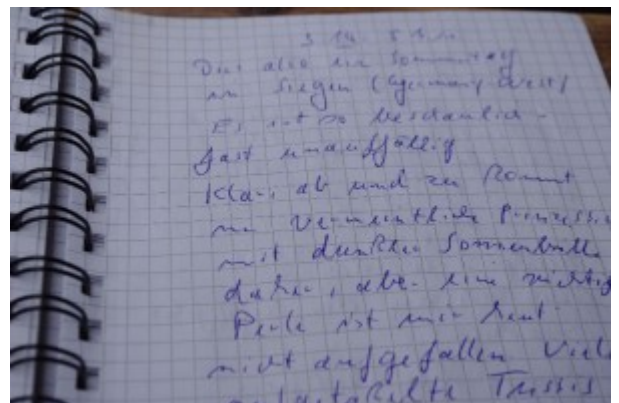 Dies also ein Sonnentag
in Siegen (Germany-West)
Es ist so beschaulich -
fast unauffällig.
Klar, ab und zu kommt
ne vermeintliche Prinzessin
mit dunkler Sonnenbrille
daher, aber eine richtig
Perle ist mir heut
nicht aufgefallen Viel
Tussis